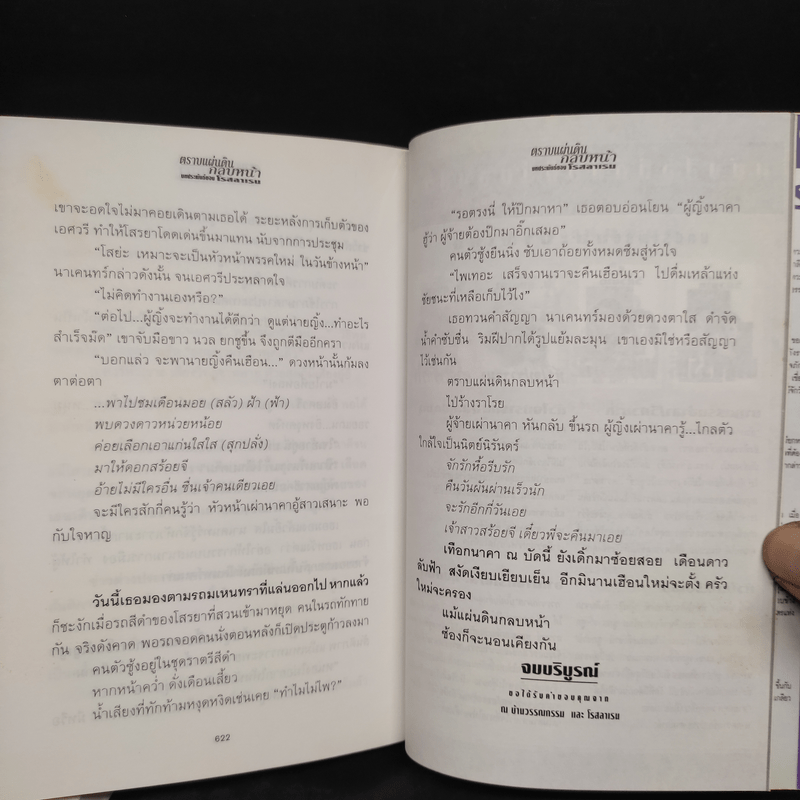 ตราบแผ่นดิน
กลบหน้า
บทประพันธ์ของ โรสลาเรน
เขาจะอดใจไม่มาคอยเดินตามเธอได้ ระยะหลังการเก็บตัวของ
เอศวรี ทำให้โสรยาโดดเด่นขึ้นมาแทน นับจากการประชุม
“โสย่ะ เหมาะจะเป็นหัวหน้าพรรคใหม่ ในวันข้างหน้า”
นาเคนทร์กล่าวดังนั้น จนเอศวรีประหลาดใจ
“ไม่คิดทำงานเองหรือ?”
“ต่อไป...ผู้ญิ้งจะทำงานได้ดีกว่า ดูแต่นายญิ้ง...ทำอะไร
สำเร็จมั๊ด” เขาจับมือขาว นวล ยกชูขึ้น จึงถูกตีมืออีกครา
“บอกแล้ว จะพานายญิ้งคืนเฮือน...” ดวงหน้านั้นก้มลง
ตาต่อตา
...พาไปชมเดือนมอย (สลัว) ฝ้า (ฟ้า)
พบดวงดาวหน่วยหน้อย
ค่อยเลือกเอาแก่นใสใส (สุกปลั่ง)
มาให้ดอกสร้อยจี
อ้ายไม่มีใครอื่น ชื่นเจ้าคนเดียวเอย
จะมีใครสักกี่คนรู้ว่า หัวหน้าเผ่านาคาอู้สาวเสนาะ พอ
กับใจหาญ
วันนี้เธอมองตามรถมเหนทราที่แล่นออกไป หากแล้ว
ก็ชะงักเมื่อรถสีดำของโสรยาที่สวนเข้ามาหยุด คนในรถทักทาย
กัน จริงดังคาด พอรถจอดคนนั่งตอนหลังก็เปิดประตูก้าวลงมา
คนตัวซู้งอยู่ในชุดราตรีสีดำ
หากหน้าคว่ำ ดั่งเดือนเสี้ยว
น้ำเสียงที่ทักท้ามหงุดหงิดเช่นเคย “ทำไมไม่ไพ?”
622
ตราบแผ่นดิน
กลบหน้า
บทประพันธ์ของ โรสลาเรน
“รอตรงนี่ ให้ปี๊กมาหา” เธอตอบอ่อนโยน “ผู้ญิ้งนาคา
ฮู้ว่า ผู้จ้ายต้องปี๊กมาอี๊กเสมอ”
คนตัวซู้งยืนนิ่ง ซับเอาถ้อยทั้งหมดซึมสู่หัวใจ
“ไพเทอะ เสร็จงานเราจะคืนเฮือนเรา ไปดื่มเหล้าแห่ง
ชัยชนะที่เหลือเก็บไว้ไง”
เธอทวนคำสัญญา นาเคนทร์มองด้วยดวงตาใส ดำจัด
น้ำคำซับชื่น ริมฝีปากได้รูปแย้มละมุน เขาเองมิใช่หรือสัญญา
ไว้เช่นกัน
ตราบแผ่นดินกลบหน้า
ไป่ร้างราโรย
ผู้จ้ายเผ่านาคา หันกลับ ขึ้นรถ ผู้ญิ้งเผ่านาคารู้...ไกลตัว
ใกล้ใจเป็นนิตย์นิรันดร์
จักรักหื้อรีบรัก
คืนวันผันผ่านเร็วนัก
จะรักอีกกี่วันเอย
เจ้าสาวสร้อยจี เดี๋ยวพี่จะคืนมาเอย
เทือกนาคา ณ บัดนี้ ยังเดิ้กมาซ้อยสอย เดือนดาว
ลับฟ้า สงัดเงียบเยียบเย็น อีกมินานเฮือนใหม่จะตั้ง ครัว
ใหม่จะครอง
แม้แผ่นดินกลบหน้า
ซ้องก็จะนอนเคียงกัน
จบบริบูรณ์
ขอได้รับคำขอบคุณจาก
ณ บ้านวรรณกรรม และ โรสลาเรน